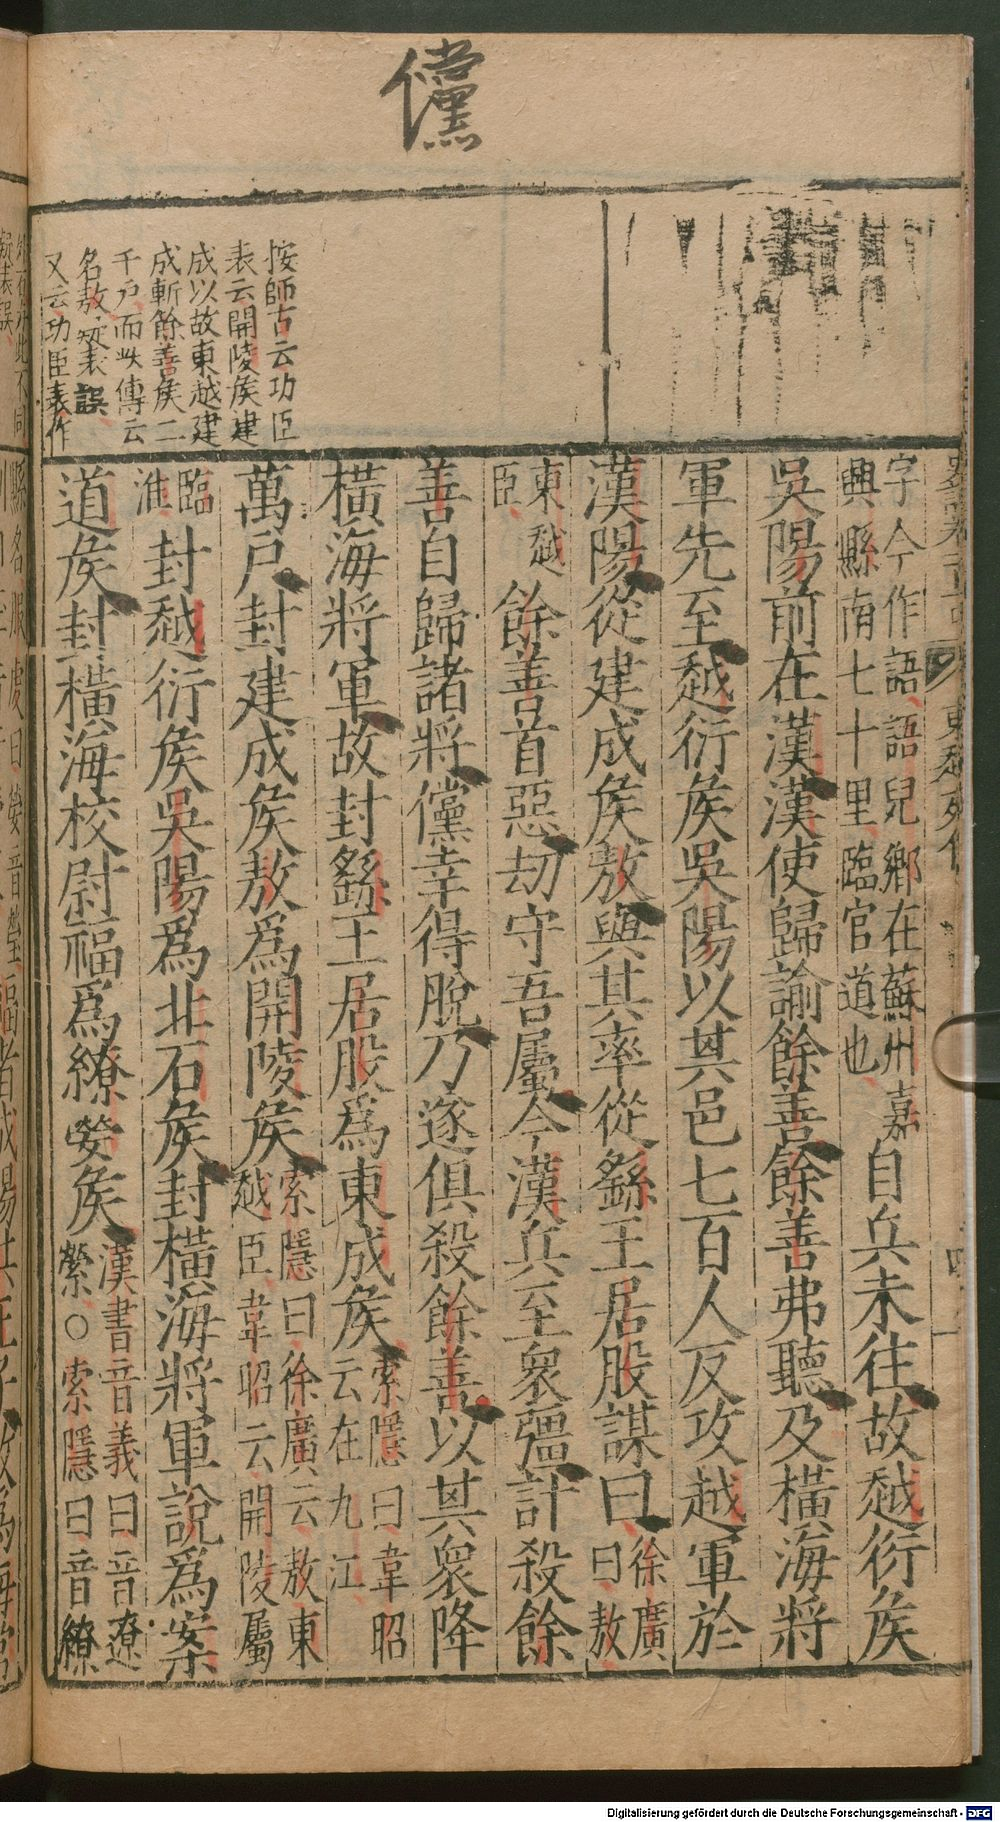 儻
按師古云功臣
表云開陵矦建
成以故東越建
成斬餘善矦二
千戸而此傳云
名敖疑表誤
又云功臣表作
字今作語語兒鄉在蘇州嘉
興縣南七十里臨官道也
自兵未往故越衍矦
吳陽前在漢漢使歸諭餘善餘善弗聽及橫海將
軍先至越衍矦吳陽以其邑七百人反攻越軍於
漢陽從建成矦敖與其率從繇王居股謀曰
徐廣
曰敖
東越
臣
餘善首惡劫守吾屬今漢兵至衆彊計殺餘
善自歸諸將儻幸得脫乃遂俱殺餘善以其衆降
橫海將軍故封繇王居股爲東成矦
索隱曰韋昭
云在九江
萬戶封建成矦敖爲開陵矦
索隱曰徐廣云敖東
越臣韋昭云開陵屬
臨
淮
封越衍矦吳陽爲北石矦封橫海將軍說爲案
道矦封橫海校尉福爲繚嫈矦
漢書音義曰音遼
縈○索隱曰音繚
東越列傳
四
Digitalisierung gefördert durch die Deutsche Forschungsgemeinschaft - DFG